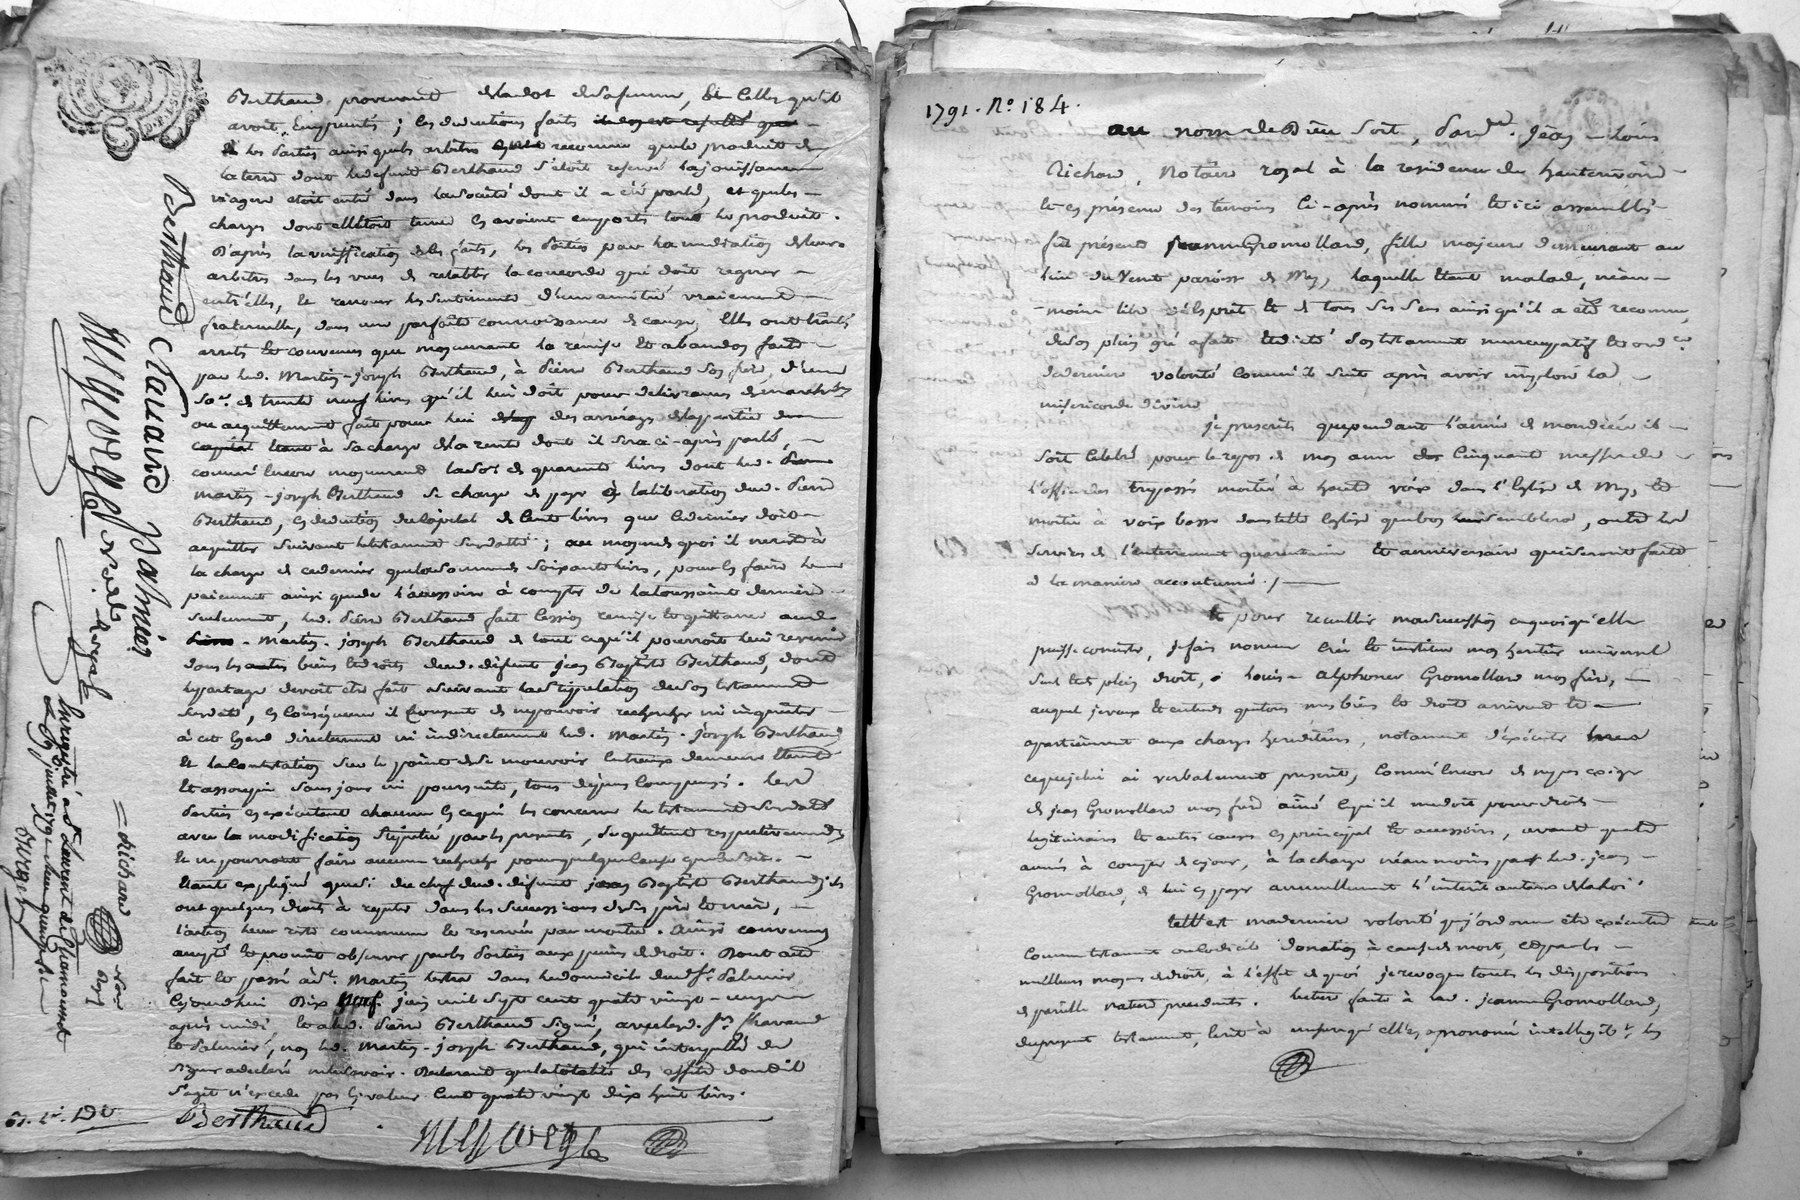 Berthaud, provenant de la dot de sa femme, et celles qu'il
avoit empruntés ; les deductions faits
les parties ainsi que les arbitres reconnu que le produit de
la terre dont led. defunt Berthaud s'étoit reservé la jouissance
viagere etoit entré dans la societé dont il a été parlé, et que les
charges dont elle étoit tenue en avoient emporté tout le produit.
D'après la veriffication de ces faits, les parties par la mediation de leurs
arbitres dans les vues de retablir la concorde qui doit regner
entr'elles, et renouer les sentiments d'une amitié vraiement
fraternelle, dans une parfaite connoissance de cause, elles ont traité
arreté et convenu que moyennant la remise et abandon fait
par led. Martin-joseph Berthaud, à Pierre Berthaud son frere, d'une
so.e de trente neuf livres qu'il lui doit pour
ou acquittement fait pour lui des arrérages de la partie
à sa charge de la rente dont il sera ci-après parlé,
comm'encore moyennant la so.e de quarante livres dont led.
Martin-joseph Berthaud se charge de payer à la liberation dud. Pierre
Berthaud, en deduction du capital de cent livres que ce dernier doit
acquitter suivant le testament susdatté ; au moyen de quoi il reste à
la charge de ce dernier que la somme de soixante livres, pour en faire le
paiement ainsi que de l'accessoire à compter de la toussaint derniere
seulement, led. Pierre Berthaud fait cession remise et quittance aud.
Martin-joseph Berthaud de tout ce qu'il pourroit lui revenir
dans les biens et droits dud. defunt jean Baptiste Berthaud, dont
le partage devoit etre fait suivant la stippulation de son testament
susdaté, en conséquence il promet de ne pouvoir rechercher ni inquiéter
à cet egard directement ni indirectement led. Martin-joseph Berthaud
et la contestation sur le point de se mouvoir entr'eux demeure éteinte
et assoupie sans jour ni poursuite, tous dépens compensés. lesd.
parties en exécutant chacune en ce qui les concerne le testament susdaté
avec la modification stipulée par les presentes, se quittent respectivement
et ne pourront faire aucune recherche pour quelque cause que ce soit.
étant expliqué que si du chef dud. defunt jean Baptiste Berthaud ils
ont quelques droits à repeter dans les successions de ses père et mère,
l'action leur reste commune et reservée par moitié. Ainsi convenu
accepté et promit observer par les parties aux peines de droit. Dont acte
fait et passé à St. Martin dans le domicile dud. Sr. Palmier
cejourdhui dix neuf juin mil sept cent quatre vingt-onze
après midi, et a led. Pierre Berthaud signé, avec lesd. Srs. Chavand
et Palmier, non led. Martin-joseph Berthaud, qui interpellé de
signer a declaré ne le savoir. Declarant que la totalité des effets dont il
s'agit n'excede pas la valeur cent quatre vingt dix huit livres.
Berthaud
Berthaud chavand palmier
not. Royal
Richard
not. Royal
Enregistré a St. Laurent de Chamousset
juillet 1791
1791. No. 184.
au nom de Dieu soit, pardt. jean-Louis
Richard, Notaire royal à la residence de hauterivoire
et en présence des temoins ci-après nommés et ici assemblés
fut présente jeanne Gromollard, fille majeure demeurant au
lieu du Vernt paroisse de Mey, laquelle étant malade, néan-
-moins libre d'esprit et de tous ses sens ainsi qu'il a été reconnu,
de son plein gré a fait et dicté son testament nuncupatif et ord.re
de derniere volonté comm'il suit après avoir imploré la
misericorde divine
je prescrits que pendant l'année de mon décès il
soit célébré pour le repos de mon ame cinquante messes de
l'office des trepassés moitié à haute voix dans l'Eglise de Mey, et
moitié à voix basse dans telle église que bon semblera, outre les
services de l'enterrement quarantain et anniversaire qui seront faits
à la manière accoutumée./
Et pour recueillir ma succession en quoi qu'elle
puisse consister, je fais nomme crée et institue mon heritier universel
seul et de plein droit, Louis-alphonse Gromollard mon frère,
auquel je veux et entends que tous mes biens et droits arrivent et
apartiennent aux charges hereditaires, notament d'exécuter
ce que je lui ai verbalement prescrit, comm'encore de ne pas exiger
de jean Gromollard mon frere aîné ce qu'il me doit pour droits
legitimaires et autres causes en principal et accessoires, avant quatre
années à compter de ce jour, à la charge néanmoins par led. jean
Gromollard, de lui en payer annuellement l'intérêt au taux de la loi.
telle est ma derniere volonté que j'ordonne etre exécutée
comme testament ou codicile donation à cause de mort, et par les
meilleurs moyens de droit, à l'effet de quoi je revoque toutes les dispositions
de pareille nature precedentes. lecture faite à lad. jeanne Gromollard,
du present testament, écrit à mesure qu'elle en a prononcé intelligibt. les